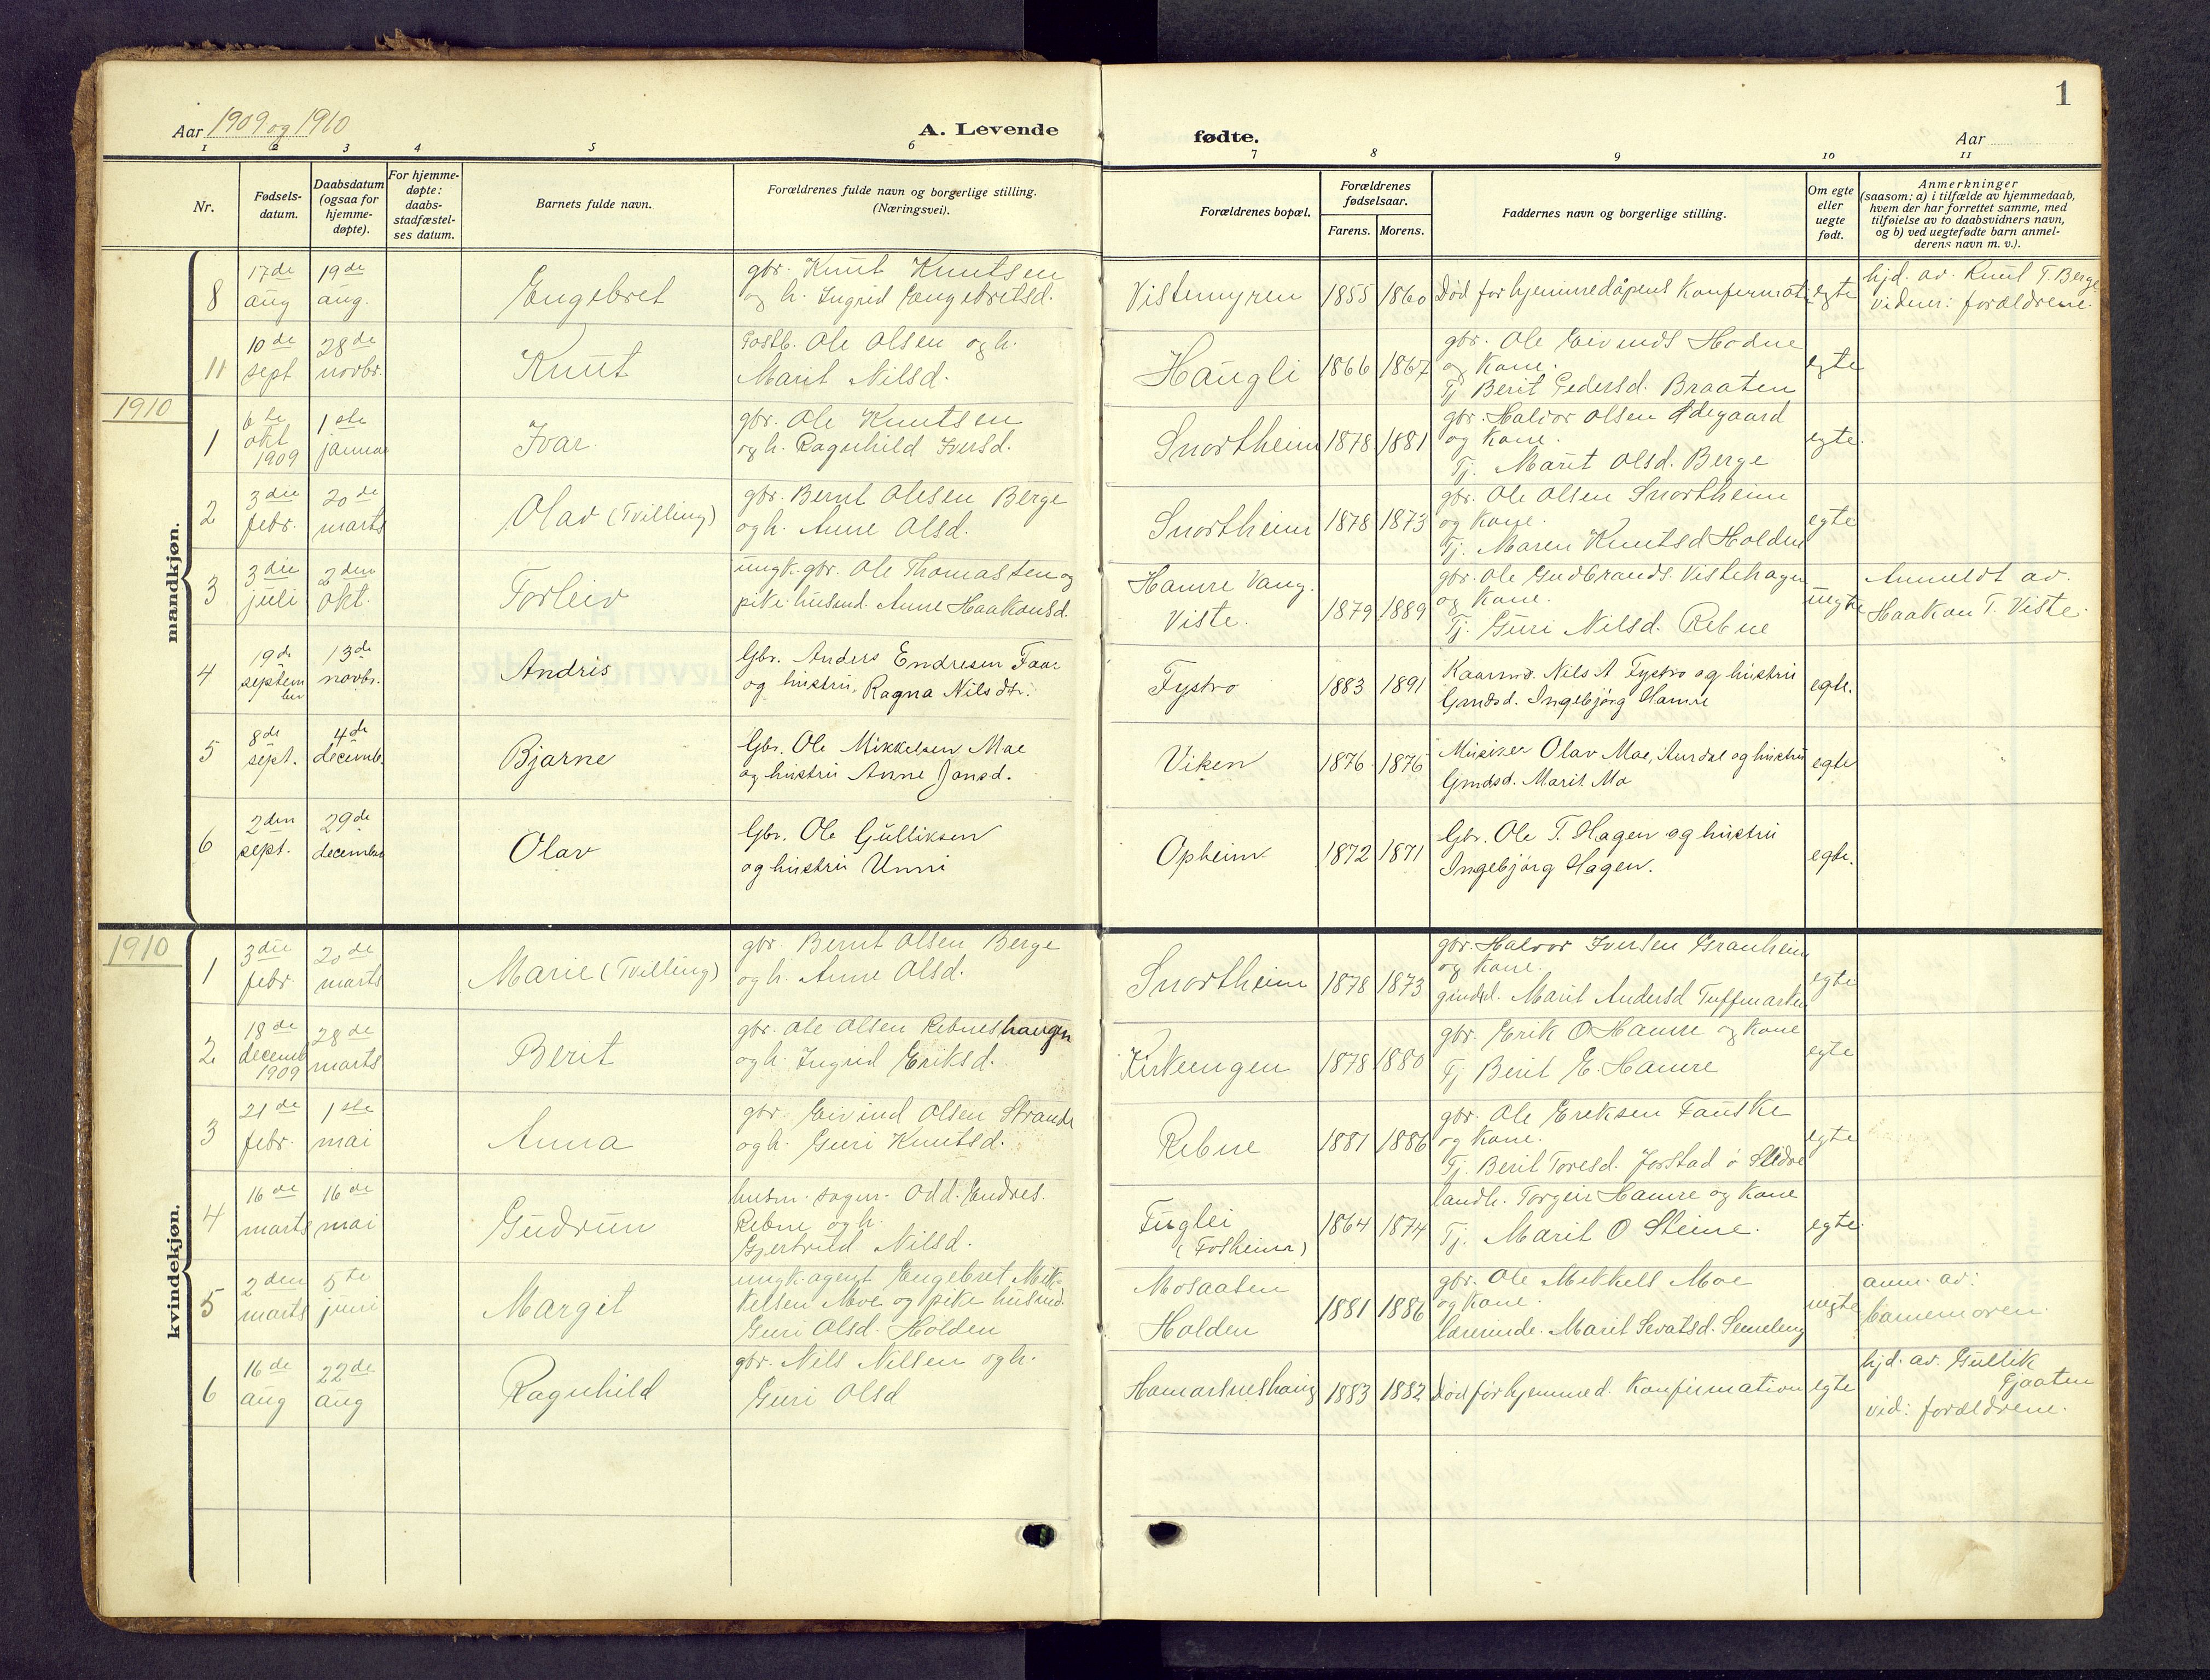 1
Aar 1909 og 1910
A. Levende
fødte.
Aar
1 2 3 4 5 6 7 8 9 10 11
Nr.
Fødsels-
datum.
Daabsdatum
(ogsaa for
hjemme-
døpte).
For hjemme-
døpte:
daabs-
stadfæstel-
ses datum.
Barnets fulde navn.
Forældrenes fulde navn og borgerlige stilling.
(Næringsvei).
Forældrenes bopæl.
Forældrenes
fødselsaar.
Farens. Morens.
Faddernes navn og borgerlige stilling.
Om egte
eller
uegte
født.
Anmerkninger
(saasom: a) i tilfælde av hjemmedaab,
hvem der har forrettet samme, med
tilføielse av to daabsvidners navn,
og b) ved uegtefødte barn anmel-
derens navn m. v.).
mandkjøn.
8
17de
aug
19de
aug.
Engebret
gbr. Knut Knutsen
og h. Ingrid Engebritsd.
Vistemyren
1855 1860
Død før hjemmedåpens Konfirmat.
egte
hjd. av Knut T. Berge
vidner: forældrene.
11
10de
sept
28de
novbr.
Knut
Postb. Ole Olsen og h.
Marit Nilsd.
Haugli
1866 1867
gbr. Ole Eivinds Hodne
og Kone.
Tj Berit Pedersd. Braaten
egte
1910
1
6te
okt
1909
1ste
januar
Ivar
gbr. Ole Knutsen
og h. Ragnhild Iversd.
Snortheim
1878 1881
gbr. Halvor Olsen Ødegaard
og Kone.
Tj. Marit Olsd. Berge
egte.
2
3die
febr.
20de
marts
Olav (Tvilling)
gbr. Bernt Olesen Berge
og h. Anne Olsd.
Snortheim
1878 1873
gbr. Ole Olsen Snortheim
og Kone.
Tj. Maren Knutsd Holden
egte
3
3die
juli
2den
okt.
Torleiv
ungk. gbr. Ole Thomassen og
pike husmd. Anne Haakonsd.
Hamre Vang.
Viste.
1879 1889
gbr. Ole Gudbrands. Vistehagen
og Kone.
Tj. Guri Nilsd. Rebne
uegte
Anmeldt av.
Haakon T. Viste.
4
19de
septem
ber
13de
novbr.
Andris
Gbr. Anders Endresen Faar
og hustru, Ragna Nilsdtr.
Fystro
1883 1891
Kaarmd. Nils A Fystro og hustru
Grmdsd. Ingebjørg Hamre
egte.
5
8de
sept.
4de
decemb.
Bjarne
Gbr. Ole Mikkelsen Moe
og hustru Anne Jonsd.
Viken
1876 1876
Musiker Olav Moe, Aurdal og hustru
Grmdsd. Marit Mo
egte
6
2den
sept.
29de
december
Olav
Gbr. Ole Gulliksen
og hustru Unni
Opheim
1872 1871
Gbr. Ole T. Hagen og hustru
Ingebjørg Hagen.
egte.
1910
kvindekjøn.
1
3die
febr.
20de
marts
Marie (Tvilling)
gbr. Bernt Olsen Berge
og h. Anne Olsd.
Snortheim
1878 1873
gbr. Halvor Iversen Granheim
og Kone.
grmdsd. Marit Andersd Tuffmarken
egte
2
18de
decemb
1909
28de
marts
Berit
gbr. Ole Olsen Rebneshaugen
og h. Ingrid Eriksd.
Kirkeengen
1878 1880
gbr. Erik O Hamre og Kone
Tj Berit E. Hamre
egte
3
21de
febr.
1ste
mai
Anna
gbr. Eivind Olsen Strande
og h. Guri Knutsd.
Rebne
1881 1886
gbr. Ole Ereksen Fauske
og Kone.
Tj. Berit Toresd. Jorstad ø Slidre
egte
4
16de
marts
16de
mai
Gudrun
husm. sagm. Odd. Endres.
Rebne og h.
Gjertrud Nilsd.
Fuglei
(Fosheim)
1864 1874
landh. Torgeir Hamre og Kone
Tj. Marit O Steine.
egte.
5
2den
marts
5te
juni
Margit
ungk. agent Engebret Mik-
kelsen Moe og pike husmd.
Guri Olsd. Holden
Mosaaten
Holden
1881 1886
gbr. Ole Mekkels Moe
og Kone.
lærerinde. Marit Sevatsd. Semeleng
uegte
anm. av:
barnemoren.
6
16de
aug
22de
aug
Ragnhild
gbr. Nils Nilsen og h.
Guri Olsd
1883 1882
Død før hjemmed. Konfirmation
egte
hjd. av. Gullik
Gjaaten
vid: forældrene.